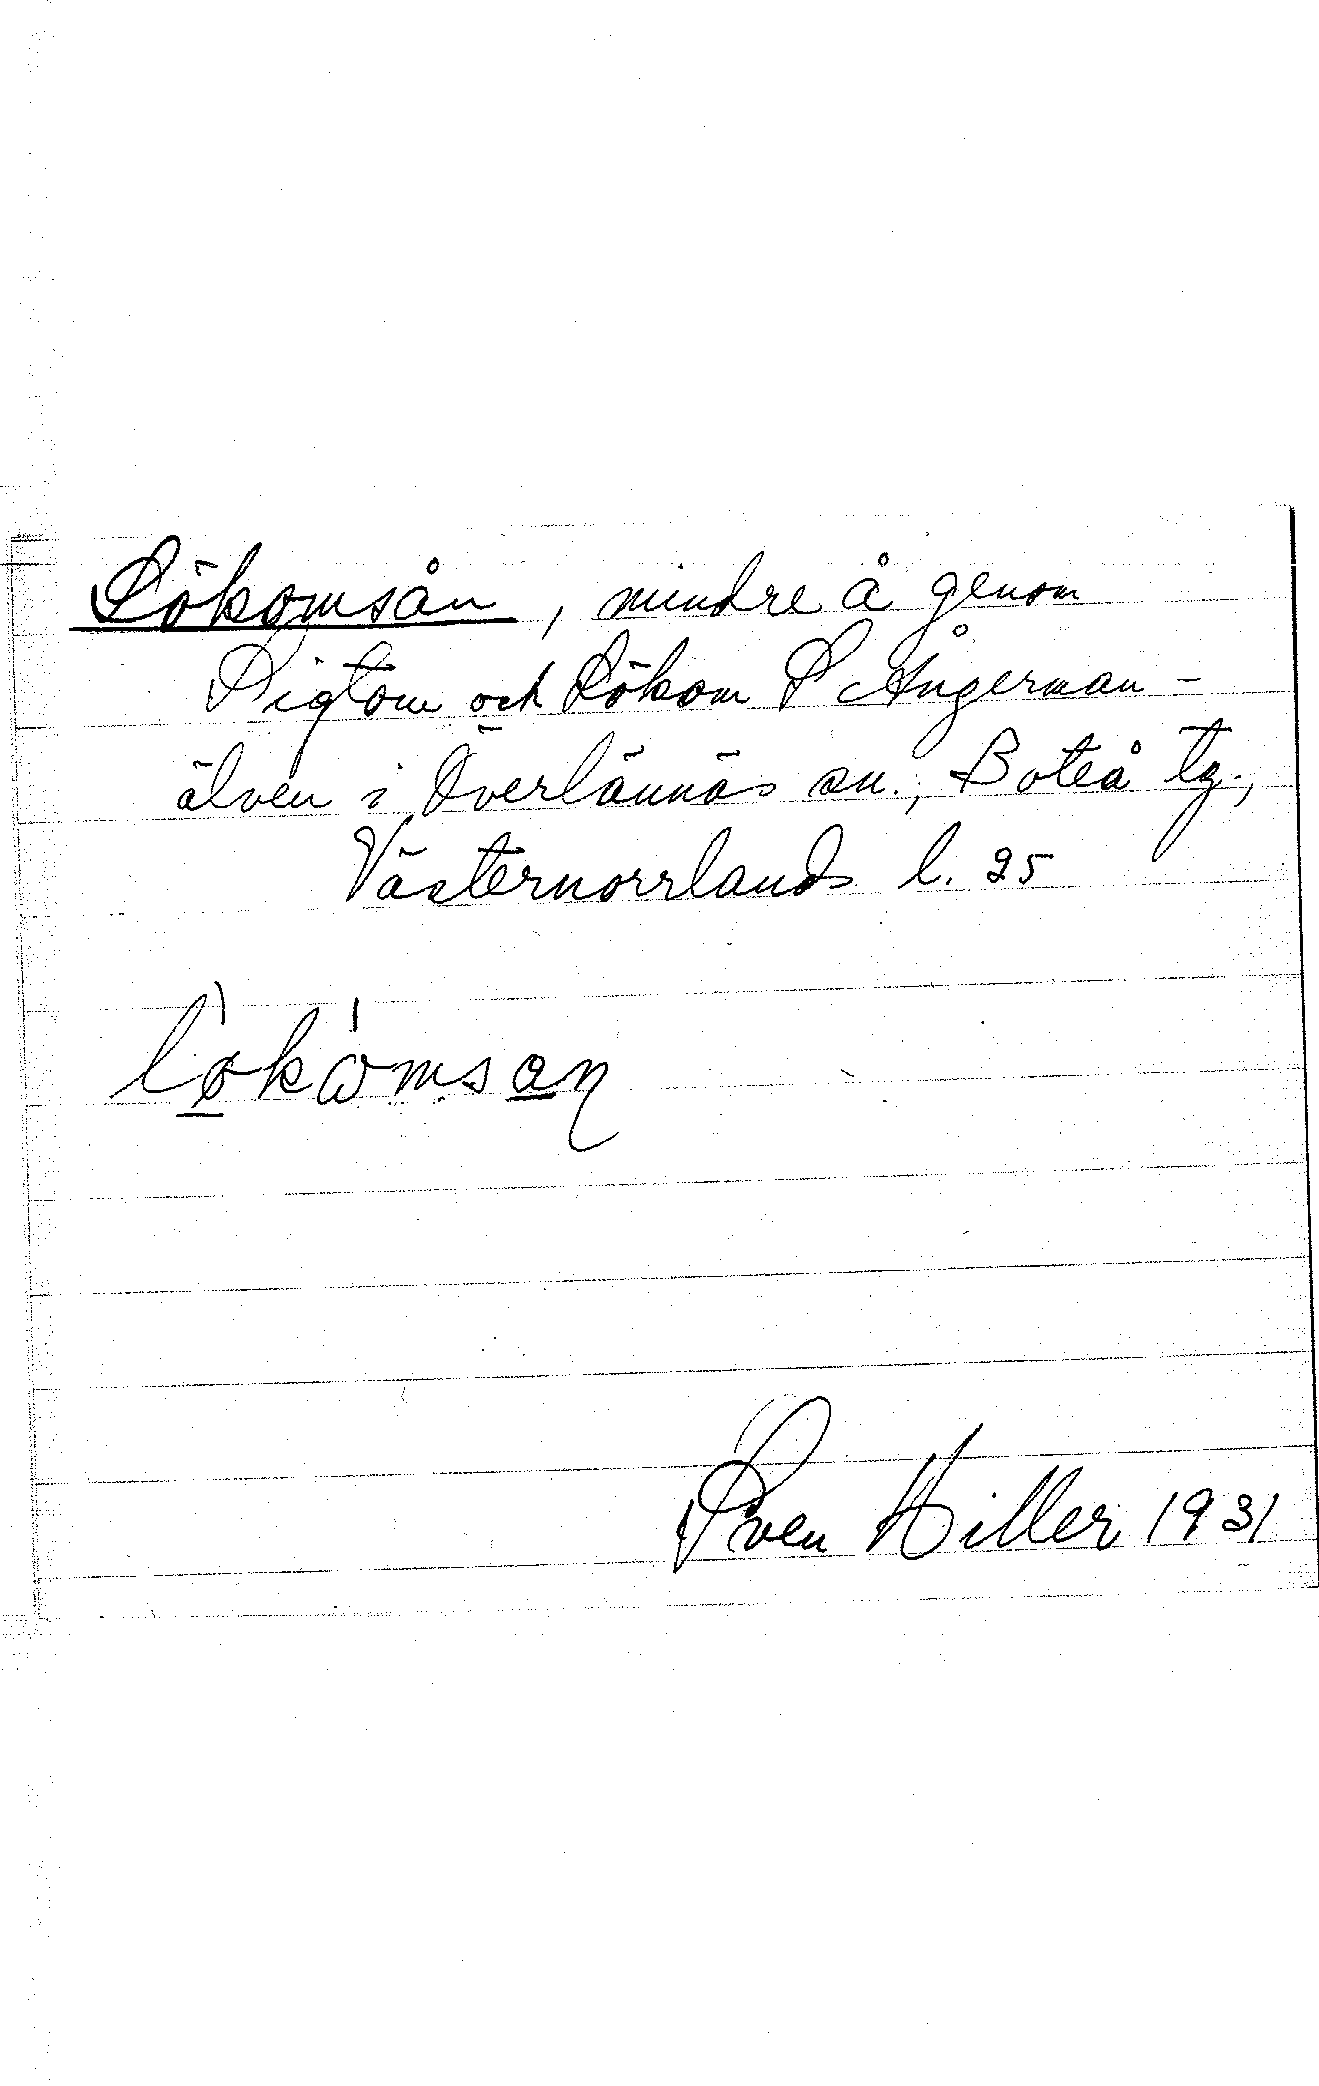 Lökomsån, mindre å genom
Sigtom och Lökom S Ångerman-
älven i Överlännäs sn., Boteå tg.,
Västernorrlands l. 25
Sven Hiller 1931